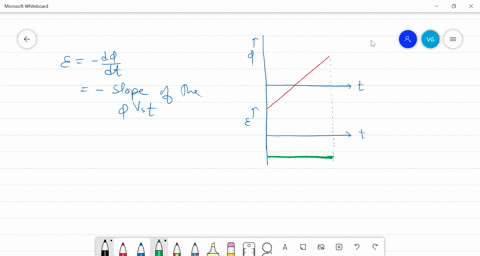 Microsoft Whiteboard
VG
ε = - dφ/dt
= - slope of the
φ Vs t
φ
t
ε
t
A